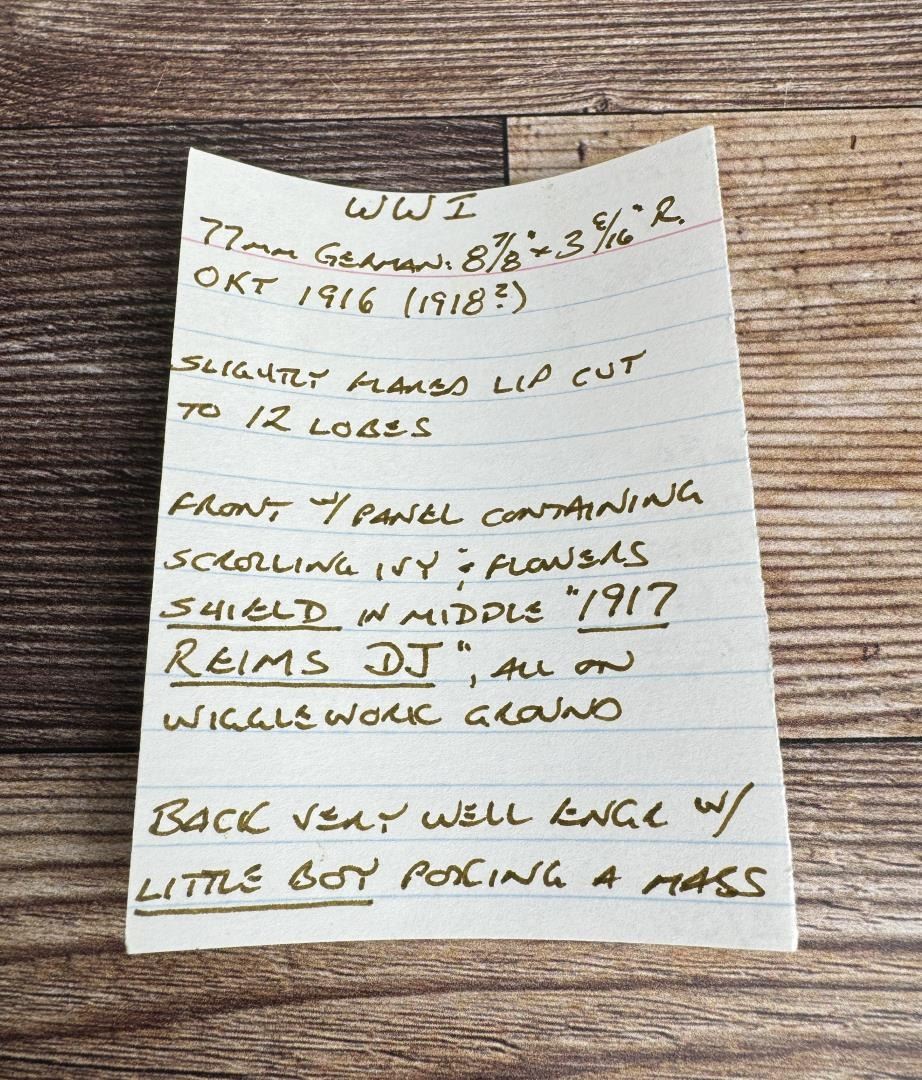 WWI
77mm GERMAN: 8 7/8" x 3 6/16" R.
OKT 1916 (1918?)
SLIGHTLY FLARED LIP CUT
TO 12 LOBES
FRONT W/ PANEL CONTAINING
SCROLLING IVY & FLOWERS
SHIELD IN MIDDLE "1917
REIMS DJ", ALL ON
WIGGLEWORK GROUND
BACK VERY WELL ENGR W/
LITTLE BOY POKING A MASS